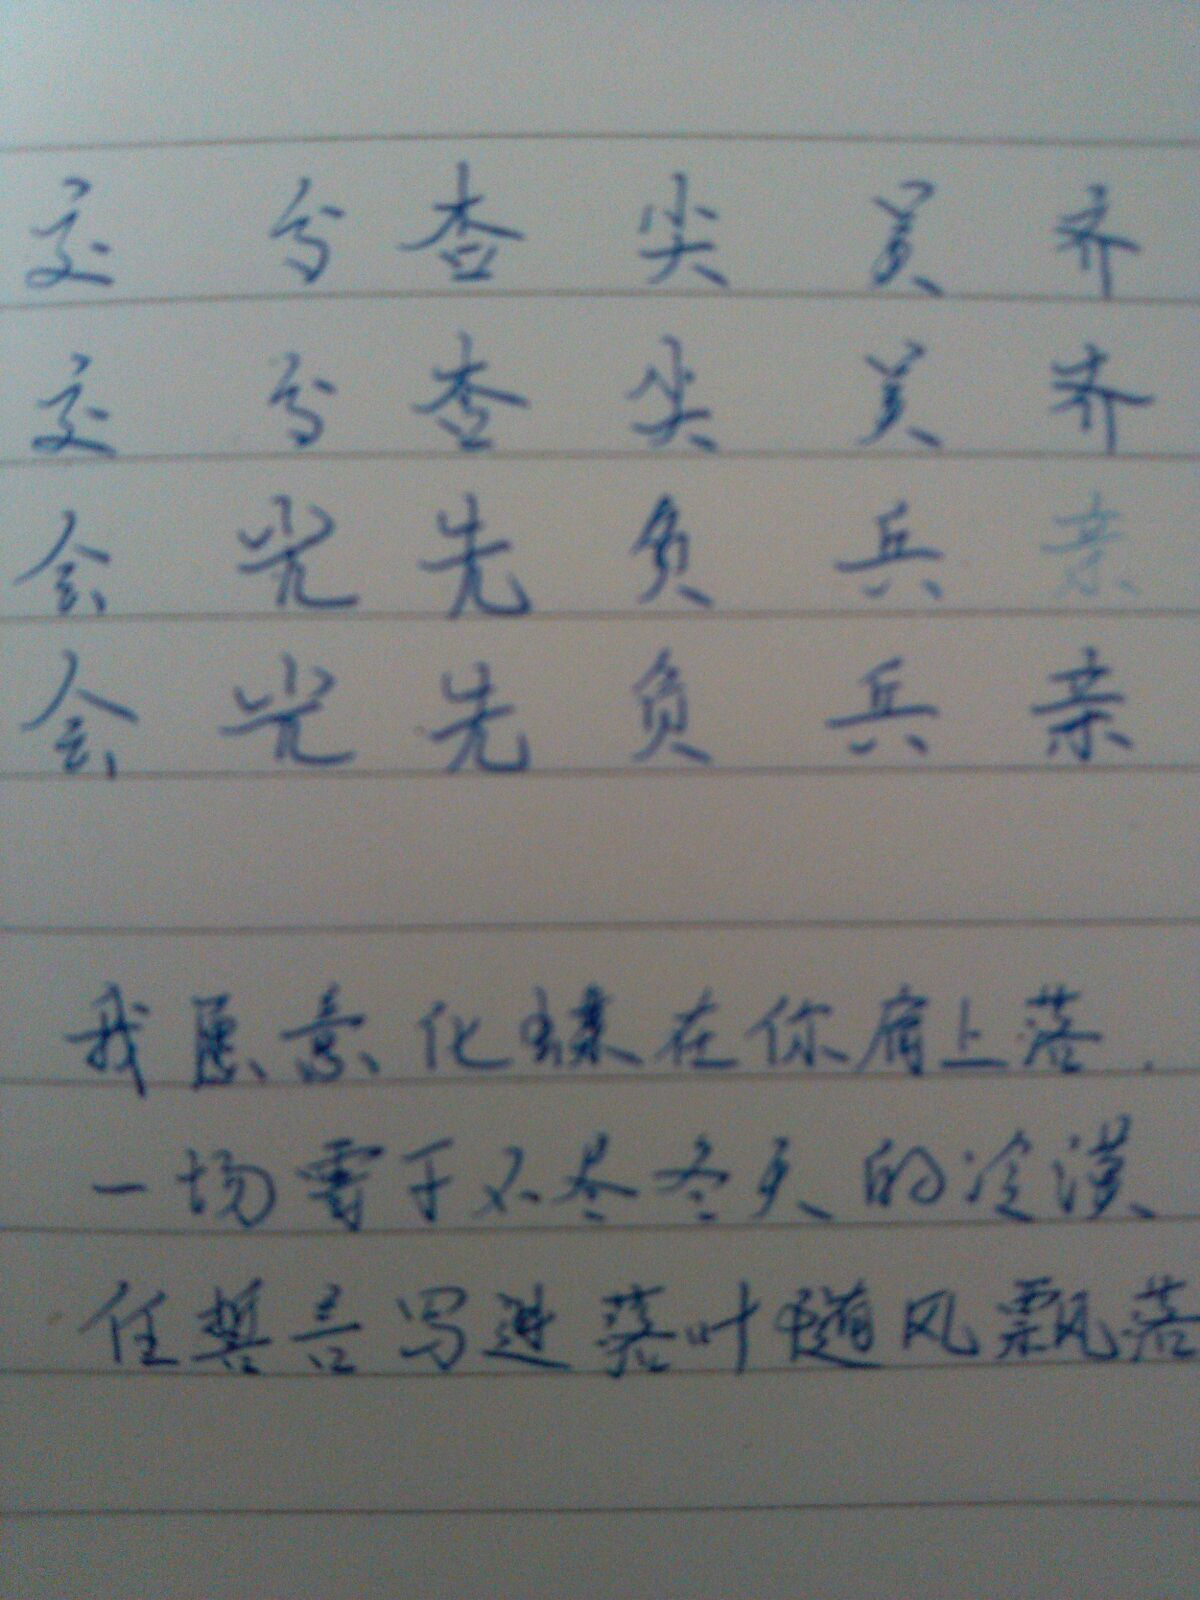 交 分 查 尖 美 齐
交 分 查 尖 美 齐
会 光 先 负 兵 亲
会 光 先 负 兵 亲
我愿意化蝶在你肩上落.
一场雪下不尽冬天的冷漠
任誓言写进落叶随风飘落